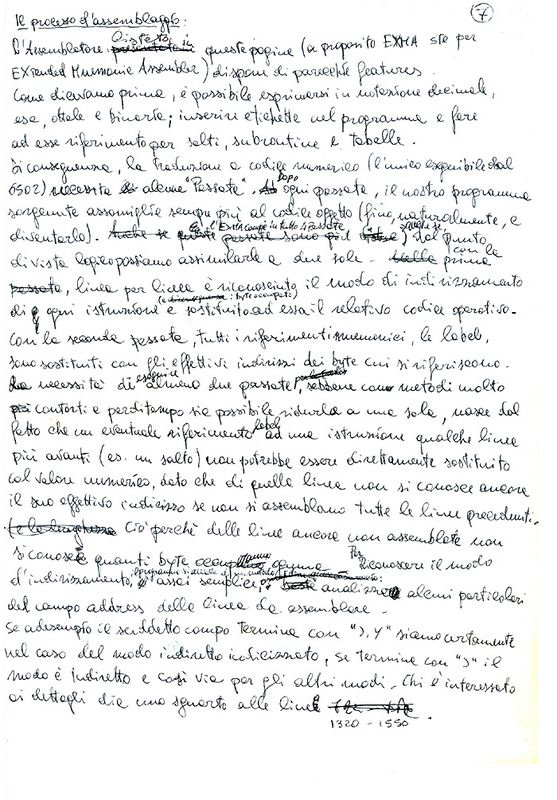 7
Il processo d'assemblaggio:
L'Assemblatore listato in queste pagine (a proposito EXMA sta per
EXtended Mnemonic Assembler) dispone di parecchie features.
Come dicevamo prima, è possibile esprimersi in notazione decimale,
esa, ottale e binaria; inserire etichette nel programma e fare
ad esse riferimento per salti, subroutine e tabelle.
Di conseguenza, la traduzione a codice numerico (l'unico eseguibile dal
6502) necessita di alcune "Passate". Dopo ogni passata, il nostro programma
sorgente assomiglia sempre più al codice oggetto (fino, naturalmente, a
diventarlo). Anche se l'EXMA compie in tutto 4 Passate dal punto
di vista logico possiamo assimilarle a due sole. Con la prima
passata, linea per linea è riconosciuto il modo di indirizzamento
di ogni istruzione e sostituito ad essa il relativo codice operativo.
Con la seconda passata, tutti i riferimenti mnemonici, le label,
sono sostituiti con gli effettivi indirizzi dei byte cui si riferiscono.
La necessità di eseguire almeno due passate, sebbene con metodi molto
più contorti e perditempo sia possibile ridurla a una sola, nasce dal
fatto che un eventuale riferimento label ad una istruzione qualche linea
più avanti (es. un salto) non potrebbe essere direttamente sostituito
col valore numerico, dato che di quella linea non si conosce ancora
il suo effettivo indirizzo se non si assemblano tutte le linee precedenti.
Ciò perché delle linee ancora non assemblate non
si conosce quanti byte occupi ognuna. Per riconoscere il modo
d'indirizzamento, assai semplice, analizzare alcuni particolari
del campo address della linea da assemblare.
Se ad esempio il suddetto campo termina con "),Y" siamo certamente
nel caso del modo indiretto indicizzato, se termina con ")" il
modo è indiretto e così via per gli altri modi. Chi è interessato
ai dettagli dia uno sguardo alle linee
1320 - 1550.